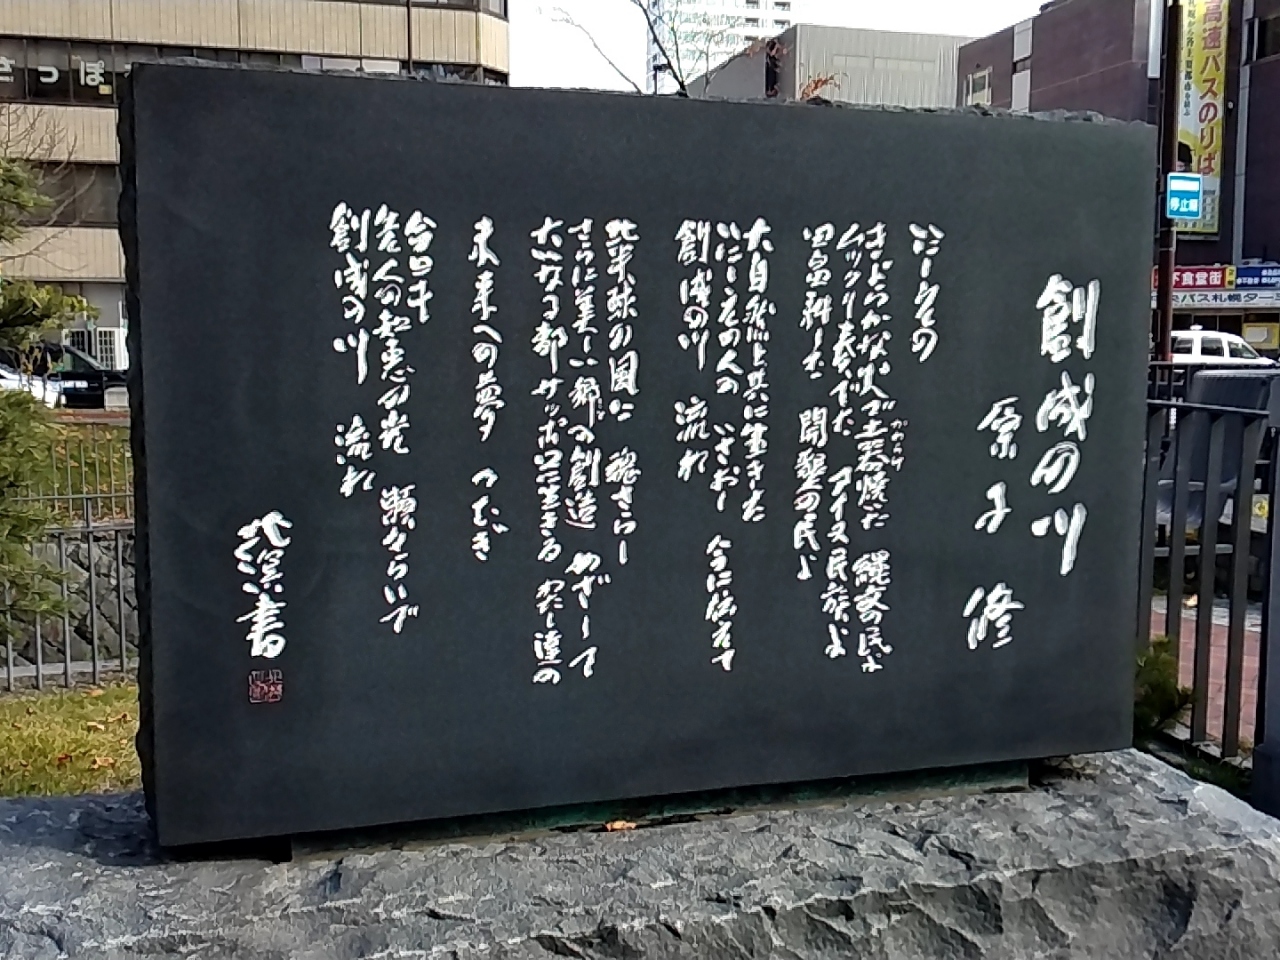 創成の川
原子修
いにしえの
さざらかな火で土器焼いた 縄文の民よ
かわらけ
ムックリ奏でた アイヌ民族よ
田畠耕した 開墾の民よ
大自然と共に生きた
いにしえの人の いさおし 今に伝えて
創成の川 流れ
北半球の風に 魂さらし
さらに美しい郷の創造 めざして
大いなる都 サッポロに生きる わたし達の
未来への夢 つむぎ
今日も
先人の知恵の光 瀬々らいで
創成の川 流れ
書
さっぽ
高速バスのりば
停止中
下食堂街
バス札幌ター